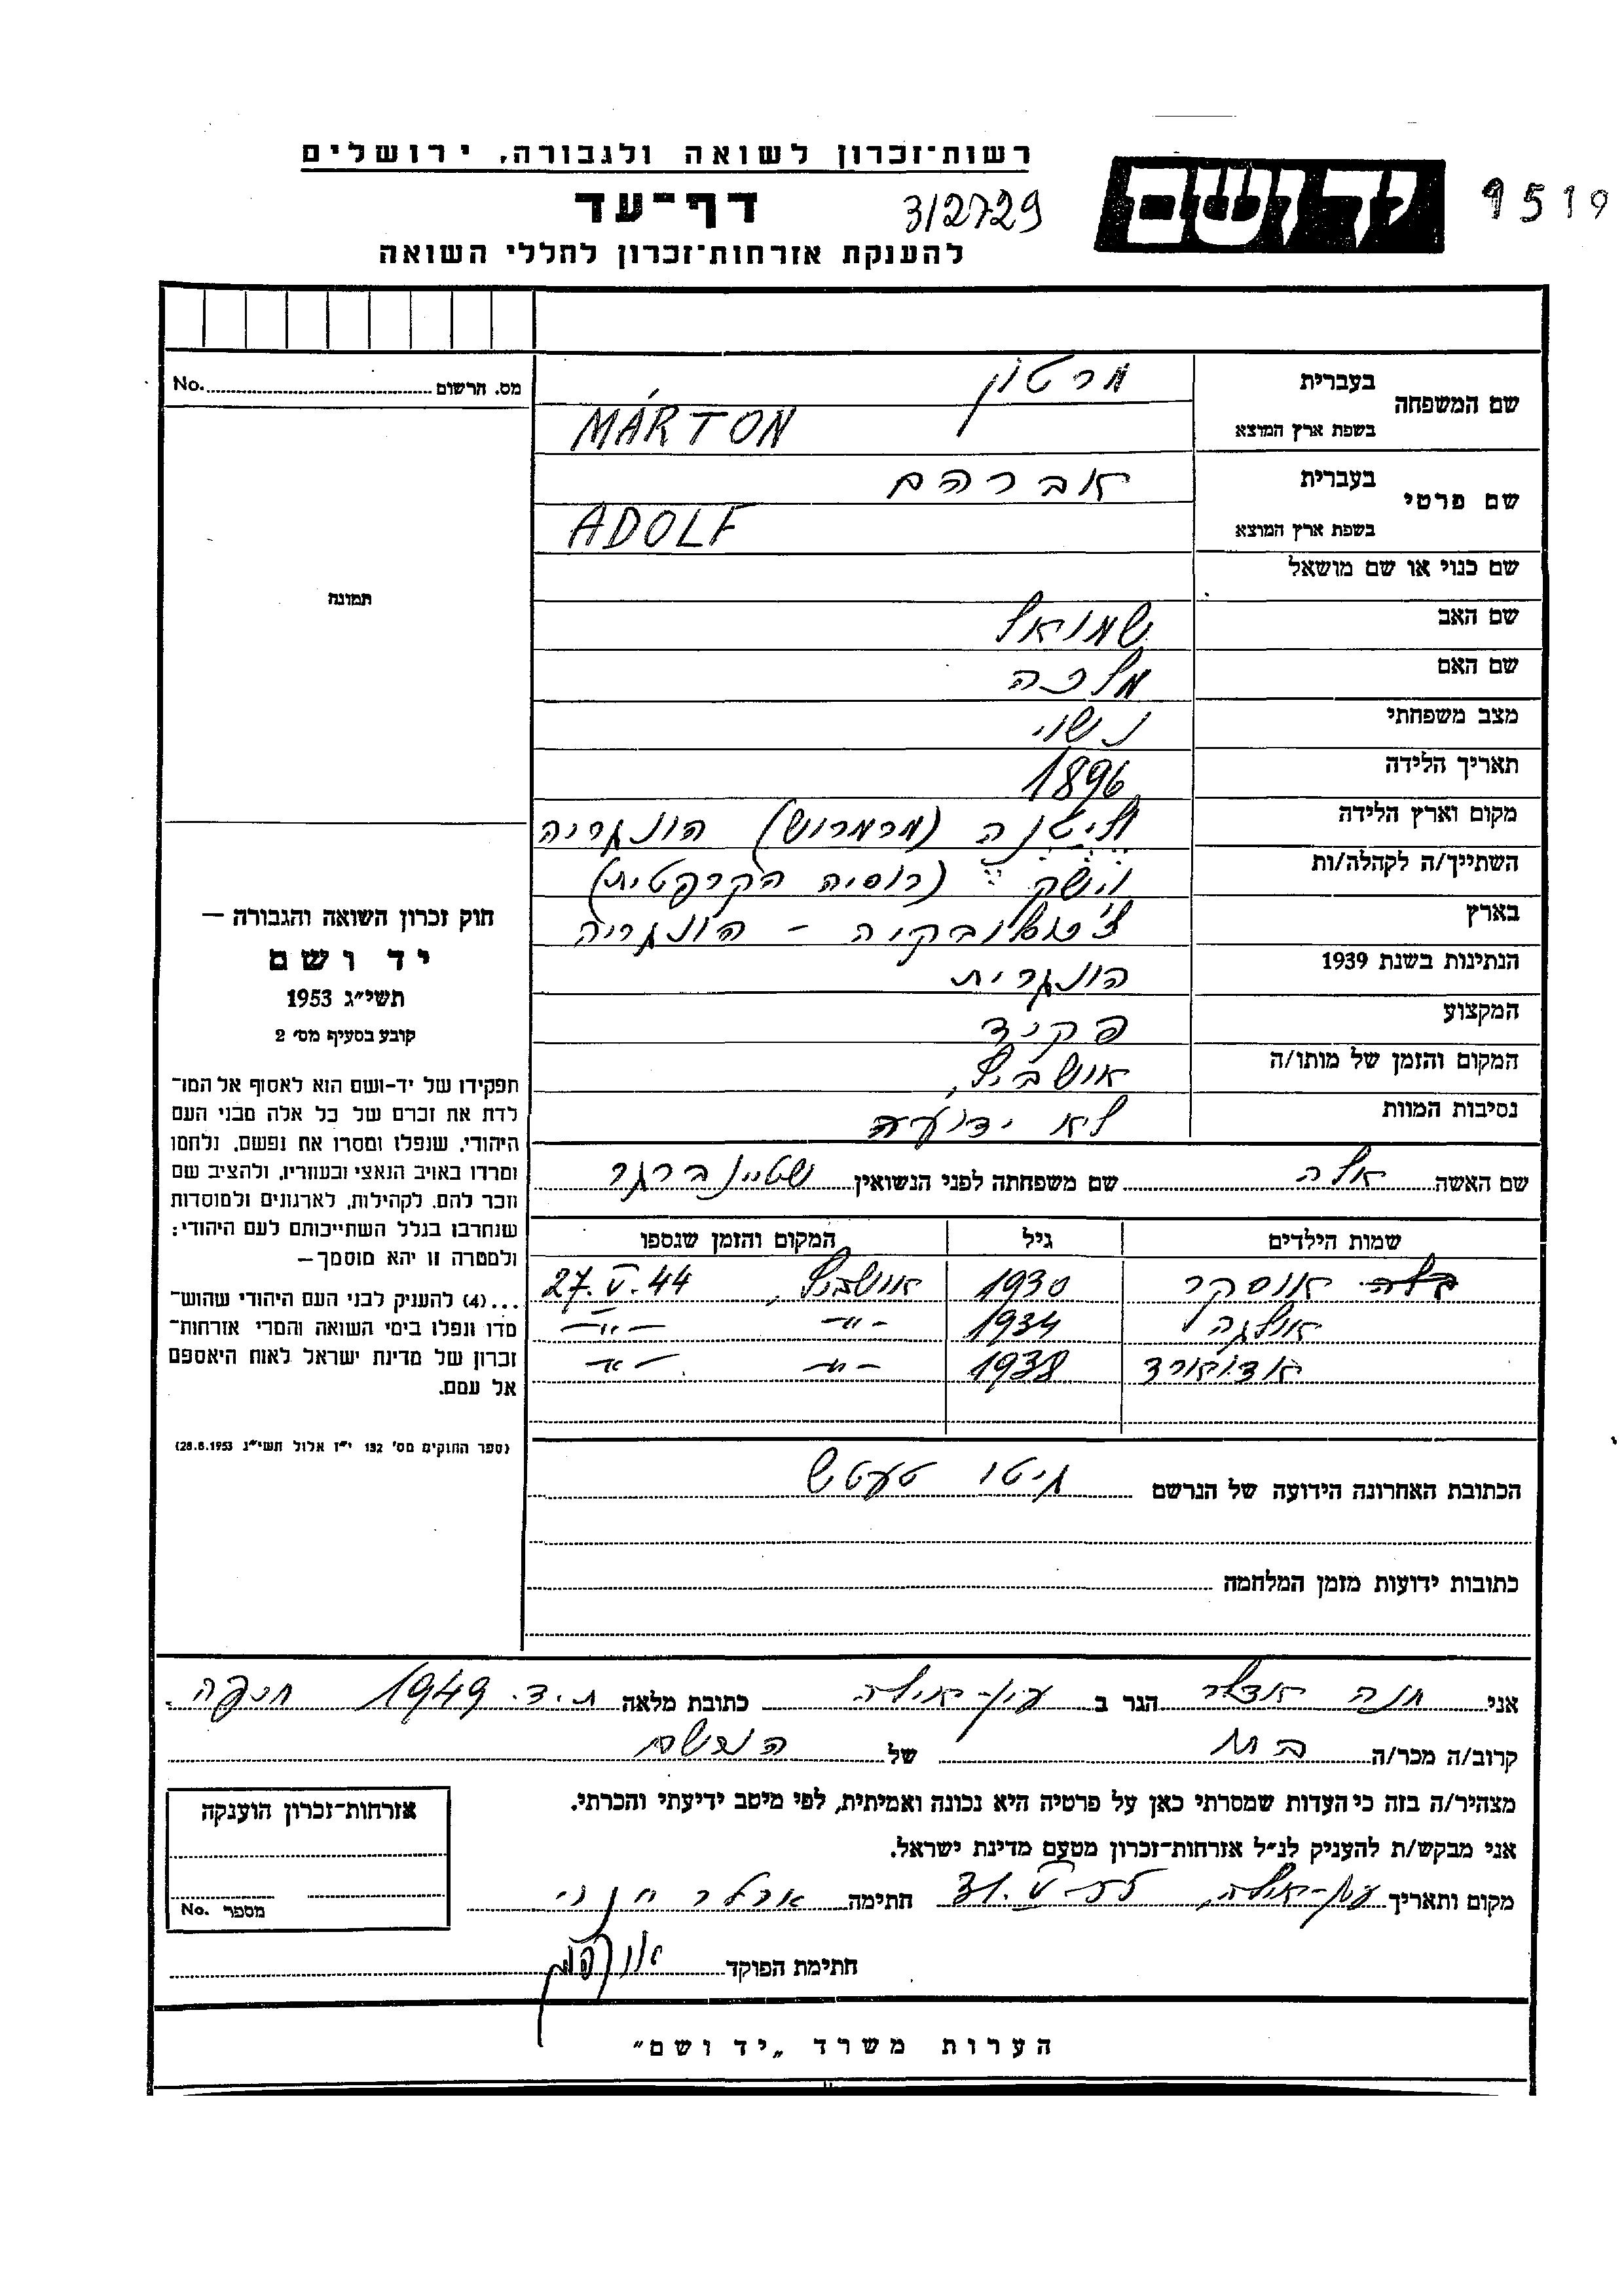 רשות־זכרון לשואה ולגבורה, ירושלים
יד ושם
1519
דף־עד
3/2729
להענקת אזרחות־זכרון לחללי השואה
שם המשפחה בעברית מרטון
בשפת ארץ המוצא MÁRTON
שם פרטי בעברית אברהם
בשפת ארץ המוצא ADOLF
שם כנוי או שם מושאל
שם האב שמואל
שם האם מלכה
מצב משפחתי נשוי
תאריך הלידה 1896
מקום וארץ הלידה (מרמרוש) הונגריה
השתייך/ה לקהלה/ות וישק (רוסיה הקרפטית)
בארץ צ'כוסלובקיה - הונגריה
הנתינות בשנת 1939 הונגרית
המקצוע פקיד
המקום והזמן של מותו/ה אושביץ,
נסיבות המוות לא ידועה
שם האשה אלה שם משפחתה לפני הנשואין שטיינברגר
שמות הילדים גיל המקום והזמן שנספו
אוסקר 1930 אושביץ, 27.V.44
אולגה 1934 -"- -"-
אדוארד 1938 -"- -"-
הכתובת האחרונה הידועה של הנרשם טעטש
כתובות ידועות מזמן המלחמה
מס. הרשום No.
תמונה
חוק זכרון השואה והגבורה —
יד ושם
תשי״ג 1953
קובע בסעיף מס׳ 2
תפקידו של יד-ושם הוא לאסוף אל המו־
לדת את זכרם של כל אלה מבני העם
היהודי, שנפלו ומסרו את נפשם, נלחמו
ומרדו באויב הנאצי ובעוזריו, ולהציב שם
וזכר להם, לקהילות, לארגונים ולמוסדות
שנחרבו בגלל השתייכותם לעם היהודי;
ולמטרה זו יהא מוסמך—
...(4) להעניק לבני העם היהודי שהוש־
מדו ונפלו בימי השואה והמרי אזרחות־
זכרון של מדינת ישראל לאות היאספם
אל עמם.
(ספר החוקים מס׳ 132 י״ז אלול תשי״ג 28.8.1953)
אני חנה אדלר הגר ב עין-אילה כתובת מלאה ת.ד. 1949 חיפה.
קרוב/ה מכר/ה בת של הנרשם
מצהיר/ה בזה כי העדות שמסרתי כאן על פרטיה היא נכונה ואמיתית, לפי מיטב ידיעתי והכרתי.
אני מבקש/ת להעניק לנ״ל אזרחות־זכרון מטעם מדינת ישראל.
מקום ותאריך עין-אילה, 31.V.55 חתימה אדלר חנה
חתימת הפוקד
אזרחות־זכרון הוענקה
מספר No.
הערות משרד „יד ושם״